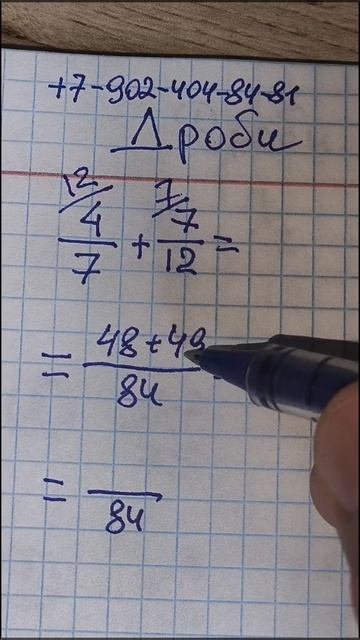 +7-902-404-84-81
Дроби
12/ 7/
4/7 + 7/12 =
= 48+49/84
= /84